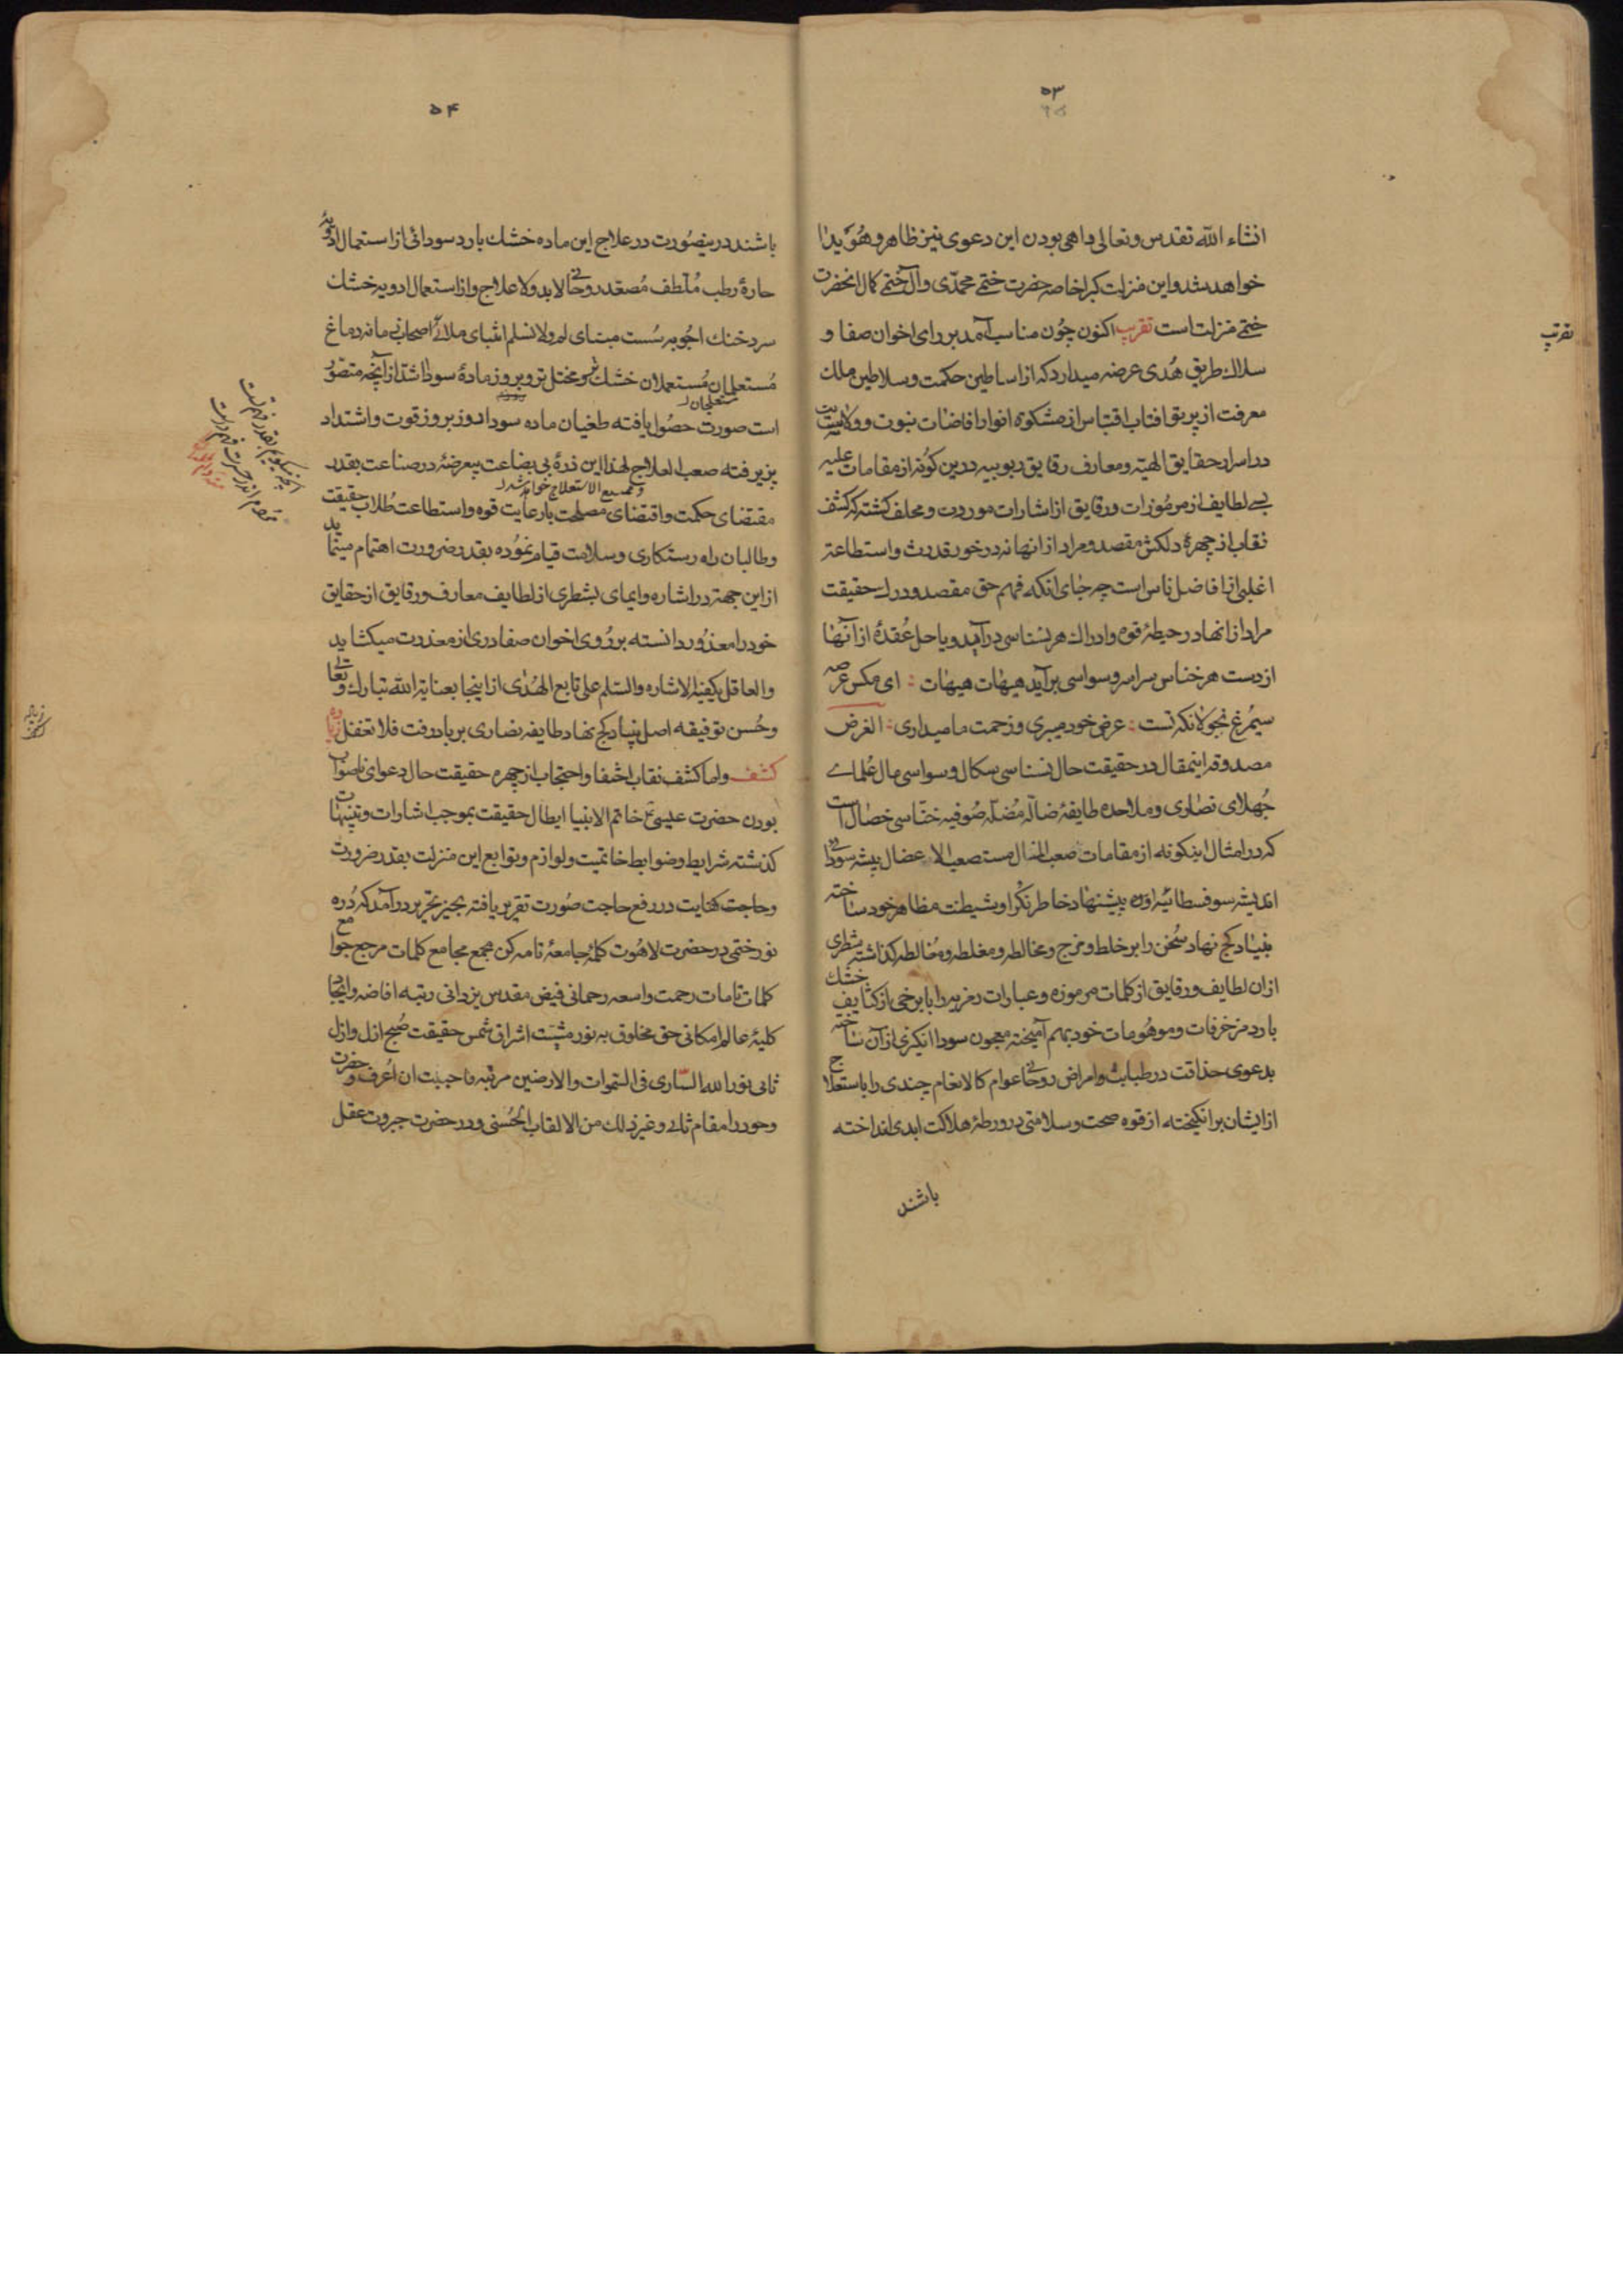 ۵۳
انشاء الله تقدس وتعالی واهی بودن این دعوی نیز ظاهر و هویدا
خواهد شد و این منزلت کبرا خاصه حضرت ختمی محمدی و آل ختمی کمال انحضرت
ختمی منزلت است تقریب اکنون چون مناسب آمد بر رای اخوان صفا و
سلاک طریق هدی عرضه میدارد که از اساطین حکمت و سلاطین ملک
معرفت از پرتو افتاب اقتباس از مشکوه انوار افاضات نبوت و ولایت
در اسرار حقایق الهیه و معارف رقایق ربوبیه درین کونه از مقامات علیه
بسی لطایف از مرموزات و رقایق از اشارات مودع و مخلف کشته که کشف
نقاب از چهرهٔ دلکش مقصد و مراد از انها نه در خور قدرت و استطاعة
اغلبی از افاضل ناس است چه جای انکه فهم حق مقصد و درک حقیقت
مراد از انها در حیطهٔ قوه و ادراک هر نسناسی در آید و یا حل عقدهٔ از آنها
از دست هر خناس سراسر وسواسی بر آید هیهات هیهات : ای مکس عرصه
سیمرغ نجولانکه تست : عرض خود میبری و زحمت ما میداری : الغرض
مصدوقه اینمقال در حقیقت حال نسناسی سکال وسواسی مال علمای
جهلای نصاری و ملاحده طایفهٔ ضاله مضله صوفیه خناسی خصال است
که در امثال اینکونه از مقامات صعب المنال مستصعب الاعضال پیشه سودا
اندیشه سوفسطائیه اوره پیشنهاد خاطر نکرا و شیطنت مظاهر خود ساخته
بنیاد کج نهاد سخن را بر خلط و مزج و مخالطه و مغلطه و مغالطه کذاشته شطری
ازان لطایف و رقایق از کلمات مرموزه و عبارات رمزیه را با برخی از کثایف خشک
بارد مزخرفات و موهومات خود بهم آمیخته معجون سودا انکیزی ازان ساخته
بدعوی حذاقت در طبابت و امراض روحانی عوام کالانعام چندی را باستعلاج
از ایشان برانکیخته از قوه صحت و سلامتی در ورطهٔ هلاکت ابدی انداخته
باشند
تقریب
۵۴
باشند درینصورت در علاج این ماده خشک بارد سودائی از استعمال ادویه
حارهٔ رطب ملطف مصعد روحانی لابد و لا علاج و از استعمال ادویه خشک
سرد خنک اجوبه سست مبنای لم و لا نسلم اشبای ملائی اصحاب بی مانه دماغ
مستعلمان مستعملان خشک تر و مختل تر و بروز مادهٔ سودا اشد از آنچه متصور
مستعلجان
است صورت حصول یافته طغیان ماده سودا روز بروز قوت و اشتداد
پزیرفته صعب العلاج لهذا این ذرهٔ بی بضاعت بیعرضهٔ در صناعت بقدر
و ممتنع الاستعلاج خواهد شد
مقتضای حکمت و اقتضای مصلحت با رعایت قوه و استطاعت طلاب حقیقت
و طالبان راه رستکاری و سلامت قیام نموده بقدر ضرورت اهتمام مینماید
از این جهة در اشاره و ایمای بشطری از لطایف معارف و رقایق از حقایق
خود را معذور دانسته بر روی اخوان صفا دری از معذرت میکشاید
والعاقل یکفیه الاشاره والسلم علی تابع الهدی از اینجا بعنایة الله تبارک وتعالی
و حسن توفیقه اصل بنیاد کج نهاد طایفه نصاری بر باد رفت فلا تغفل
کشف و اما کشف نقاب اخفا و احتجاب از چهره حقیقت حال دعوای ناصواب
بودن حضرت عیسی ع خاتم الانبیا ابطال حقیقت بموجب اشارات و تنبیهات
کذشته شرایط و ضوابط خاتمیت و لوازم و توابع این منزلت بقدر ضرورت
و حاجت کفایت در رفع حاجت صورت تقریر یافته بحیز تحریر در آمد که دره
نور ختمی در حضرت لاهوت کلمهٔ جامعهٔ تامه کن مجمع مجامع کلمات مرجع جوامع
کلمات تامات رحمت واسعه رحمانی فیض مقدس یزدانی رتبه افاضه و ایجاد
کلیهٔ عالم امکانی حق مخلوق به نور مشیت اشراق شمس حقیقت صبح ازل و ازل
ثانی نور الله الساری فی السموات والارضین مرتبه فاحببت ان اعرف و حضرت
وجود را مقام ثانی و غیر ذلک من الالقاب الحسنی و در حضرت جبروت عقل